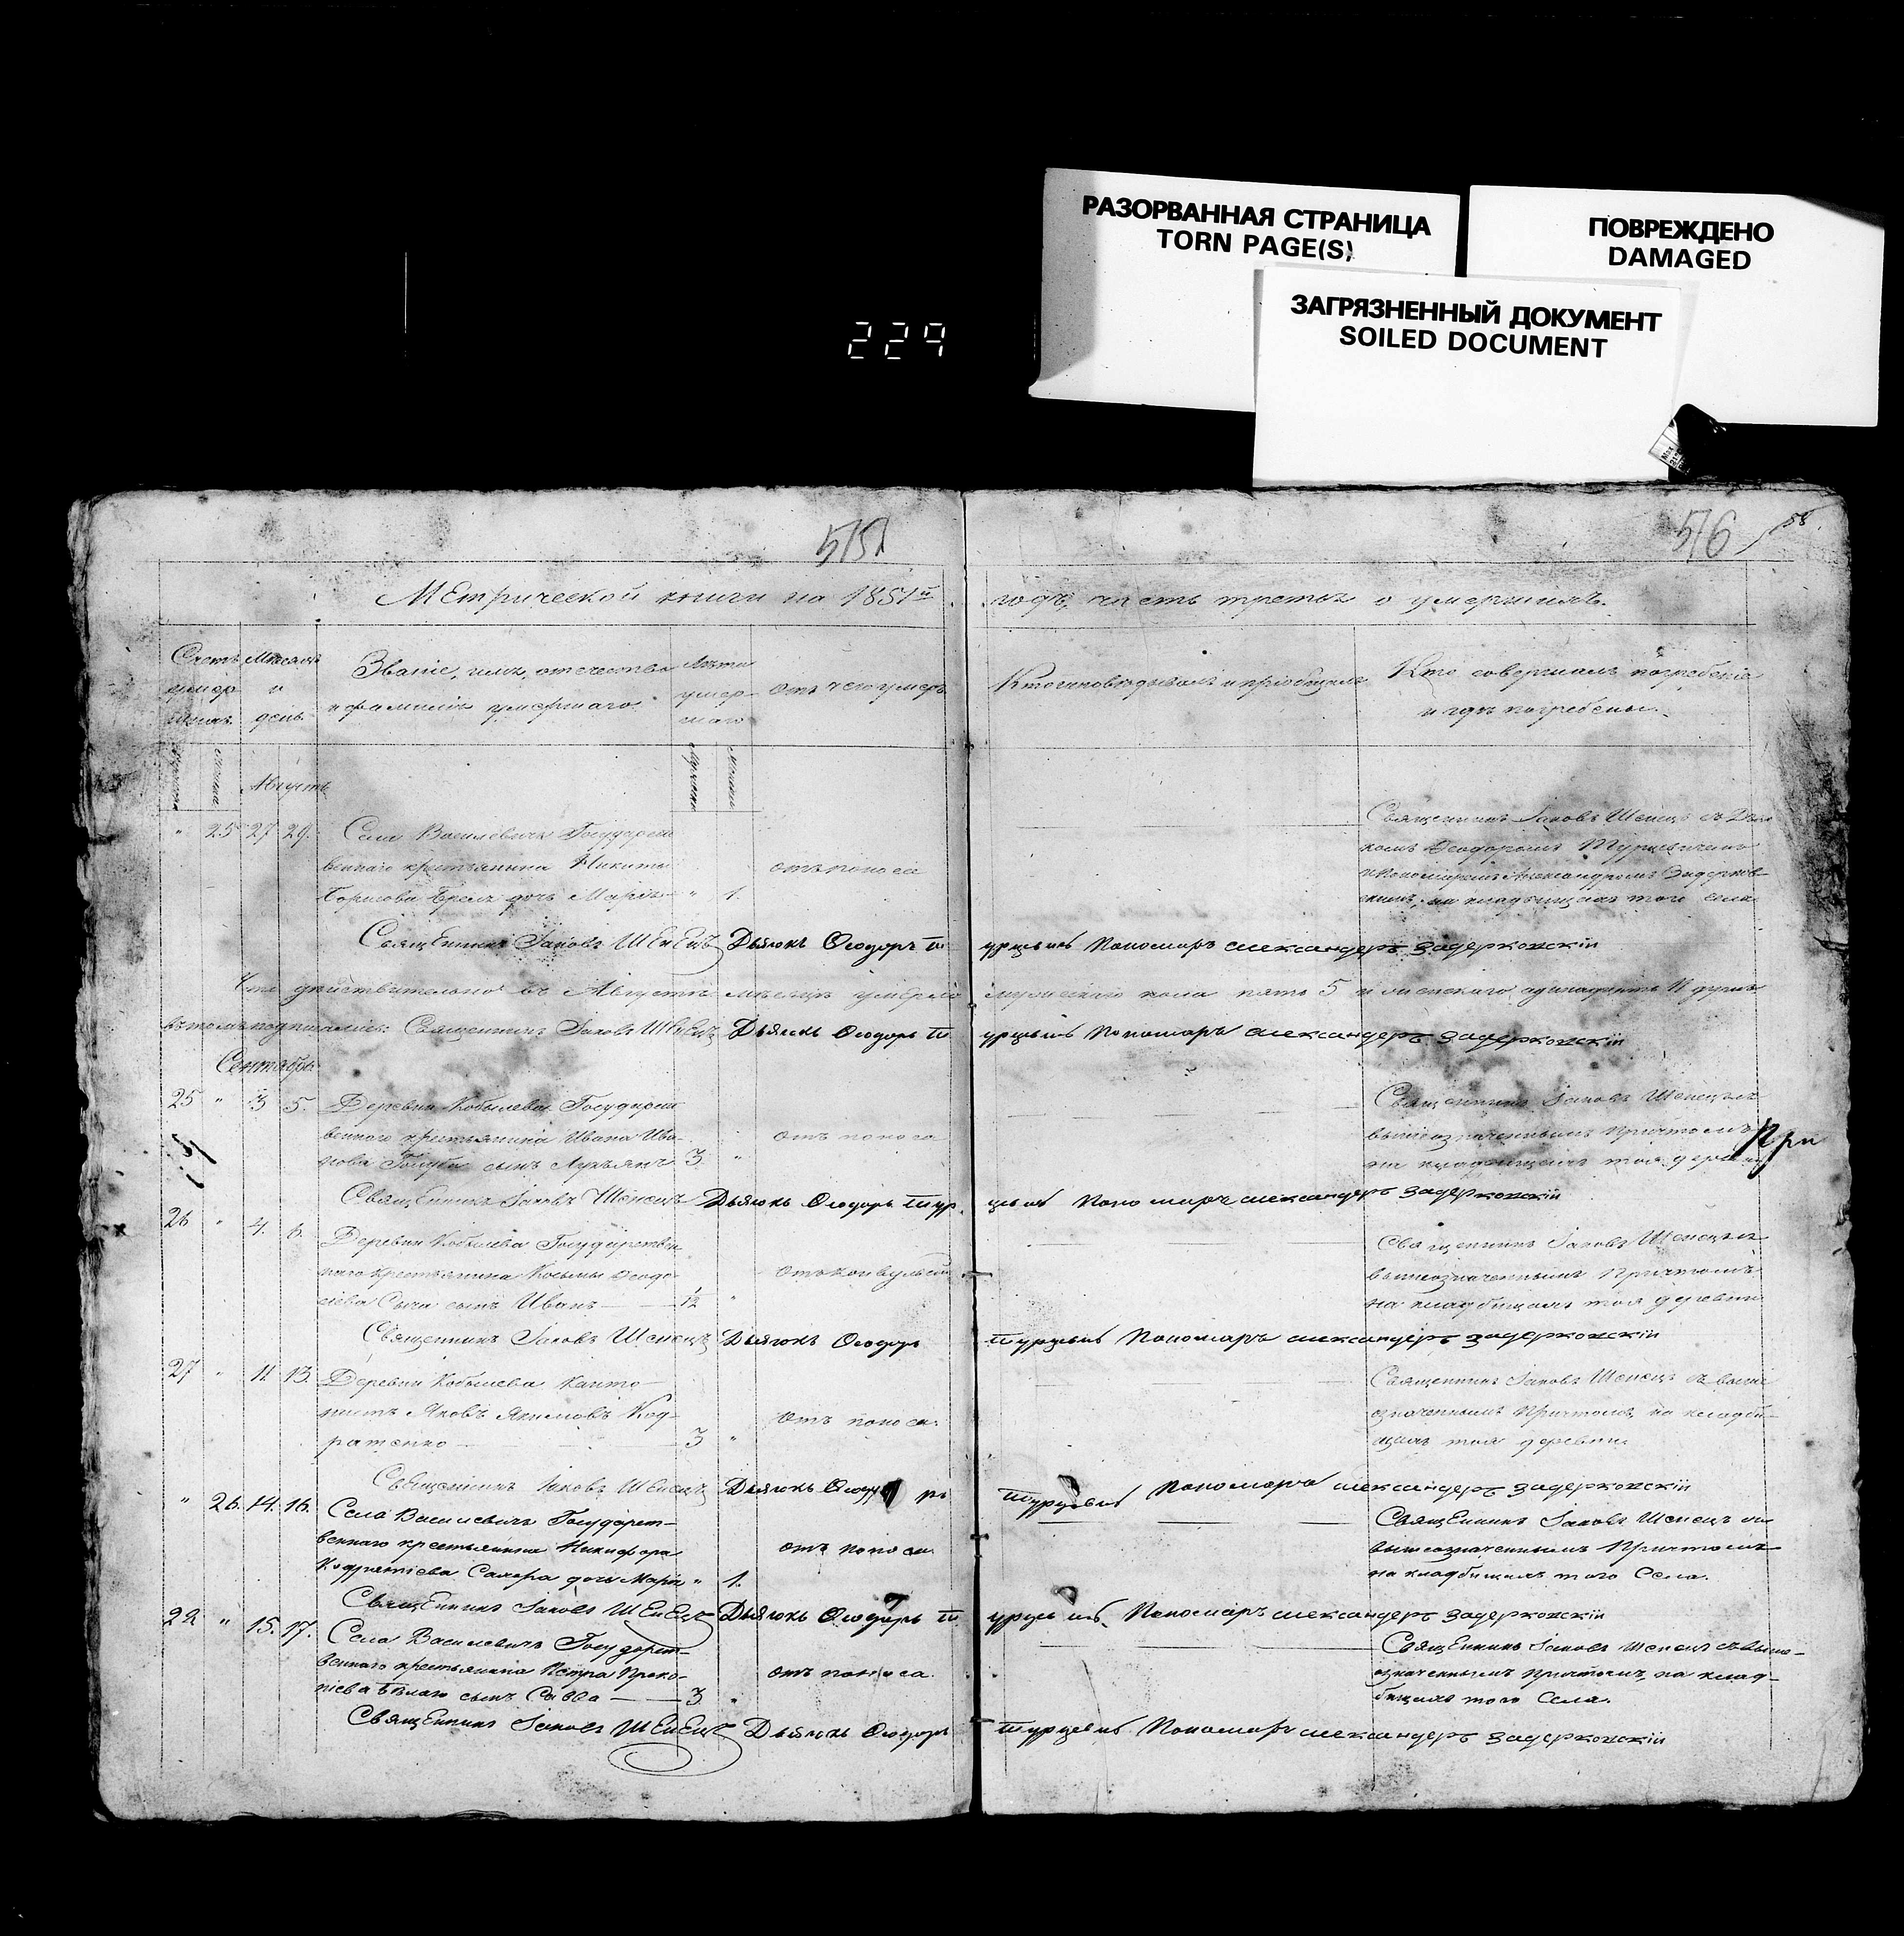 РАЗОРВАННАЯ СТРАНИЦА
TORN PAGE(S)
ПОВРЕЖДЕНО
DAMAGED
ЗАГРЯЗНЕННЫЙ ДОКУМЕНТ
SOILED DOCUMENT
229
515
516
58.
Метрической книги на 1851й годъ, часть третья о умершихъ.
Счетъ умер
Мѣсяцъ и день
Званіе, имя, отечество
и фамилія умершаго.
Лѣта умер-
шаго
Отъ чего умеръ
Кто исповѣдывалъ и пріобщалъ
Кто совершалъ погребеніе
и гдѣ погребены.
Августъ
" 25 27 29. Села Василевичъ Государст
веннаго крестьянина Никиты
Борисова дочь Марія " 1.
отъ поноса
Священникъ Іаковъ Шепецъ съ Дья
комъ Ѳеодоромъ Турцевичемъ
и Пономаремъ Александромъ Задерков-
скимъ, на кладбищахъ того села
Священникъ Іаковъ Шепецъ Дьячокъ Ѳеодоръ Турцевичъ Пономаръ александеръ Задерковскій
Что дѣйствительно въ Августѣ мѣсяцѣ умерло мужескаго пола пять 5 и женскаго одинадцать 11 душъ
въ томъ подписались: Священникъ Іаковъ Шепецъ Дьячокъ Ѳеодоръ Турцевичъ Пономаръ александеръ Задерковскій
Сентябрь
25 " 3 5. Деревни Кобылева Государст
веннаго крестьянина Ивана Ива-
нова Голуба сынъ Лукьянъ 3. "
отъ поноса
Священникъ Іаковъ Шепецъ съ
вышеозначеннымъ Причтомъ
на кладбищахъ тоя деревни
При
Священникъ Іаковъ Шепецъ Дьячокъ Ѳеодоръ Турцевичъ Пономаръ александеръ Задерковскій
26 " 4. 6. Деревни Кобылева Государствен
наго крестьянина Косьмы Ѳеодо-
сіева Сыча сынъ Иванъ — 1/12 "
Отъ конвульсіи
Священникъ Іаковъ Шепецъ съ
вышеозначеннымъ Причтомъ
на кладбищахъ тоя деревни
Священникъ Іаковъ Шепецъ Дьячокъ Ѳеодоръ Турцевичъ Пономаръ александеръ Задерковскій
27 " 11. 13. Деревни Кобылева Канто-
нистъ Яковъ Якимовъ Код-
ратенко — 3 "
Отъ поноса.
Священникъ Іаковъ Шепецъ съ выше
означеннымъ Причтомъ, на кладби-
щахъ тоя деревни
Священникъ Іаковъ Шепецъ Дьячокъ Ѳеодоръ Турцевичъ Пономаръ александеръ Задерковскій
" 26. 14. 16. Села Василевичъ Государст-
веннаго крестьянина Никифора
Кодратіева Сахора дочь Марія " 1.
отъ поноса
Священникъ Іаковъ Шепецъ съ
вышеозначеннымъ Причтомъ
на кладбищахъ того Села.
Священникъ Іаковъ Шепецъ Дьячокъ Ѳеодоръ Турцевичъ Пономаръ александеръ Задерковскій
" 15. 17. Села Василевичъ Государст-
веннаго крестьянина Петра Проко-
піева Бѣлаго сынъ Савва — 3 "
отъ поноса.
Священникъ Іаковъ Шепецъ съ выше-
означеннымъ Причтомъ, на клад-
бищахъ того Села.
Священникъ Іаковъ Шепецъ Дьячокъ Ѳеодоръ Турцевичъ Пономаръ александеръ Задерковскій